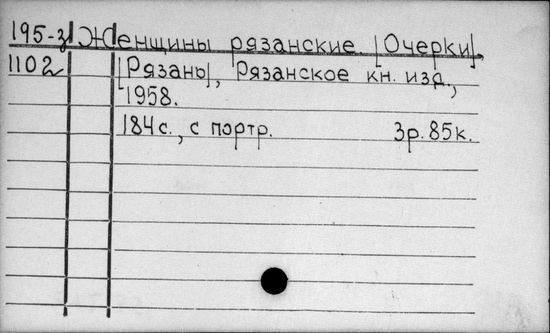 195-з Женщины рязанские. [Очерки],
1102 [Рязань], Рязанское кн. изд.,
1958.
184 с., с портр. 3р. 85к.